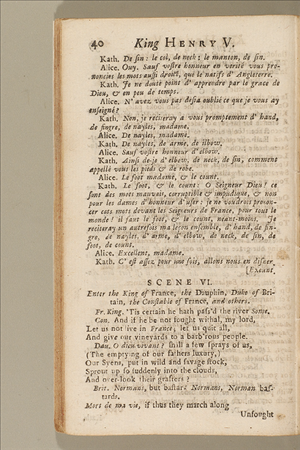 40 King HENRY V.
Kath. De sin: le col, de neck; le manton, de sin.
Alice. Ouy. Sauf vostre honneur en verité vous pro-
noncies les mots aussi droict, que le natifs d' Angleterre.
Kath. Je ne doute point d' apprendre par la grace de
Dieu, & en peu de temps.
Alice. N' avez vous pas desia oublié ce que je vous ay
enseignée?
Kath. Non, je reciteray a vous promptement d' hand,
de fingre, de nayles, madame.
Alice. De nayles, madame.
Kath. De nayles, de arme, de ilbow,
Alice. Sauf vostre honneur d' elbow.
Kath. Ainsi de-je d' elbow, de neck, de sin, comment
appellé vous les pieds & de robe.
Alice. Le foot madame, le count.
Kath. Le foot, & le count: O Seigneur Dieu! ce
sont des mots mauvais, corruptible & impudique, & non
pour les dames d' honneur d' user: je ne voudrois pronon-
cer cets mots devant les Seigneurs de France, pour tout le
monde! il faut le foot, & le count, neant-moins. Je
reciteray un autrefois ma leçon ensemble, d' hand, de fin-
gre, de nayles, d' arme, d' elbow, de neck, de sin, de
foot, de count.
Alice. Excellent, madame.
Kath. C' est assez pour une fois, allons nous en disner.
[Exeunt.
SCENE VI.
Enter the King of France, the Dauphin, Duke of Bri-
tain, the Constable of France, and others.
Fr. King. 'Tis certain he hath pass'd the river Some.
Con. And if he be not fought withal, my lord,
Let us not live in France; let us quit all,
And give our vineyards to a barb'rous people.
Dau. O dieu vivant! shall a few sprays of us,
(The emptying of our fathers luxury,)
Our Syens, put in wild and savage stock,
Sprout up so suddenly into the clouds,
And over-look their grafters?
Brit. Normans, but bastard Normans, Norman bas-
tards.
Mort de ma vie, if thus they march along
Unfought